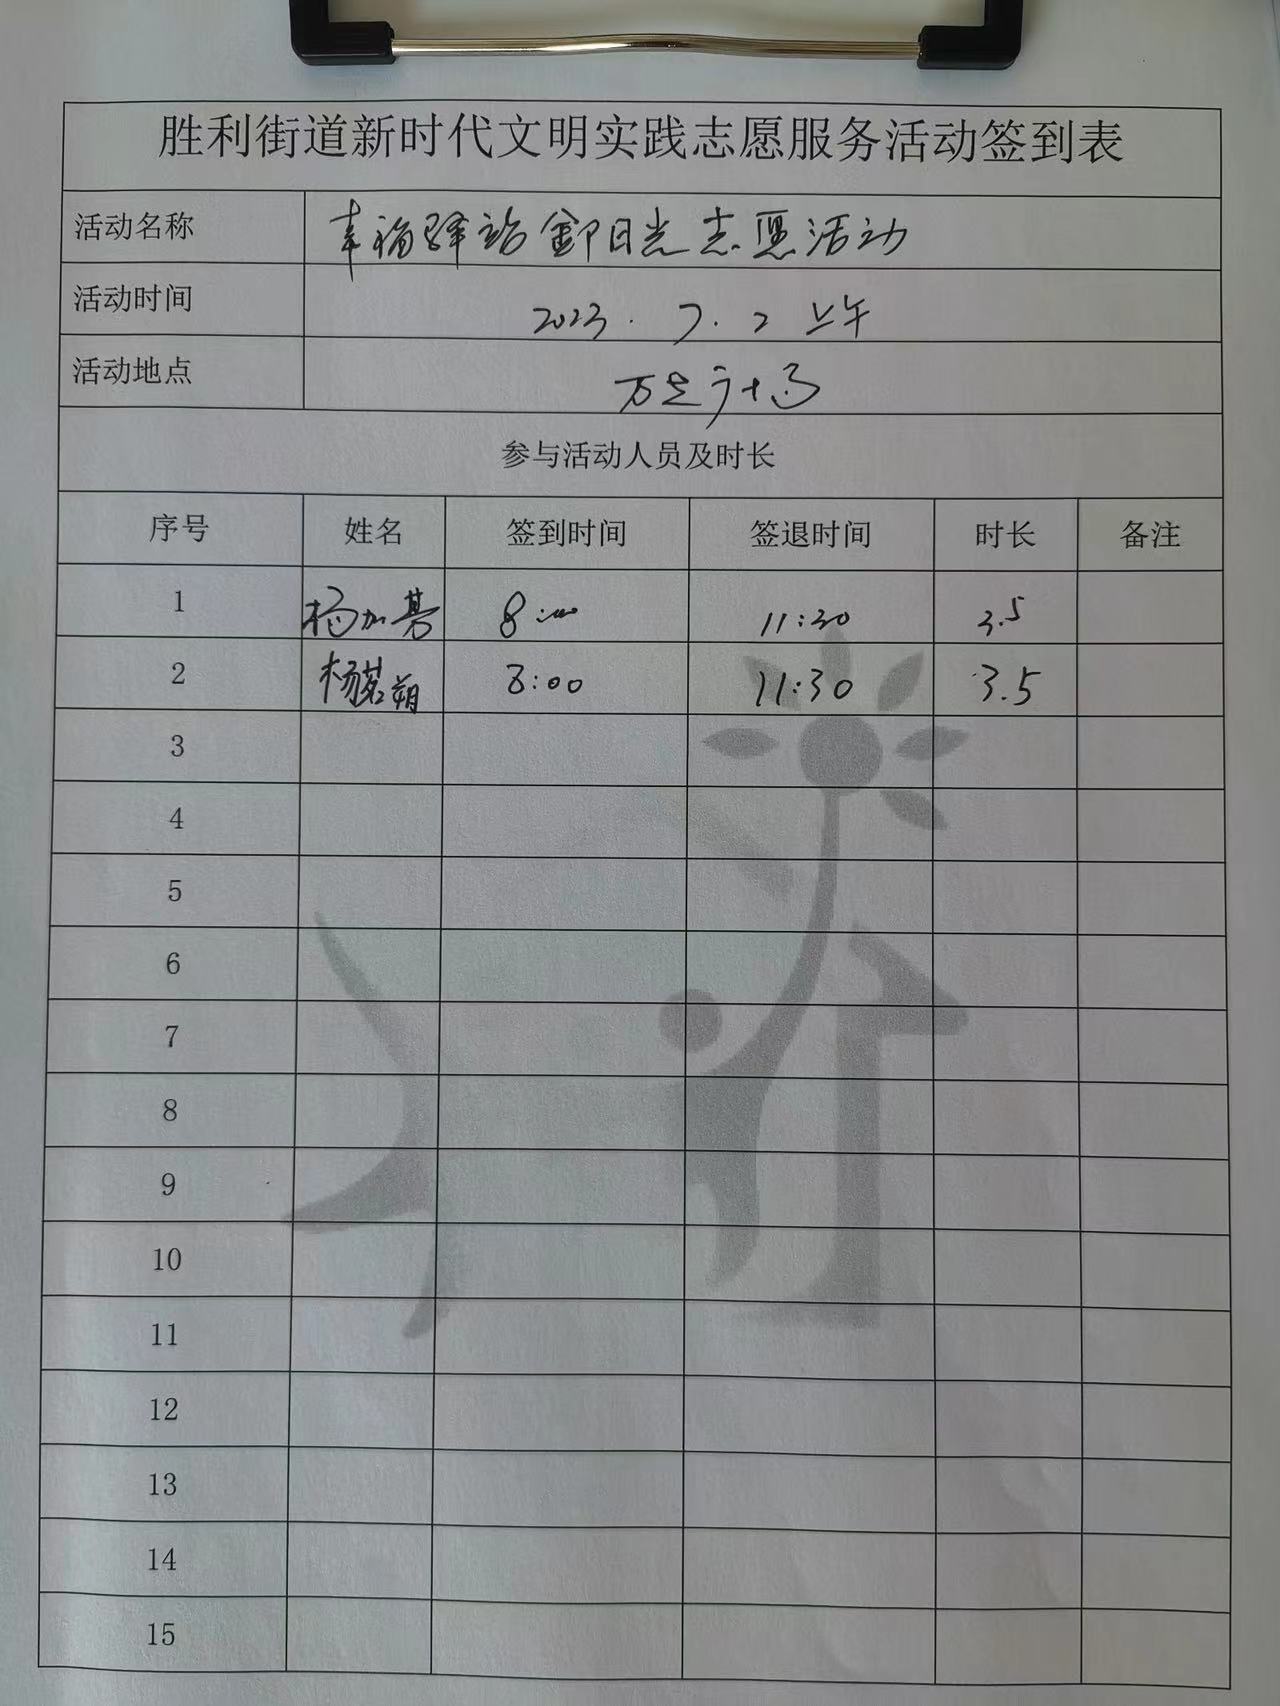 胜利街道新时代文明实践志愿服务活动签到表
活动名称 幸福驿站鄞阳光志愿活动
活动时间 2023.7.2 上午
活动地点 万达广场
参与活动人员及时长
序号 姓名 签到时间 签退时间 时长 备注
1 杨加 8:00 11:30 3.5
2 杨茗朔 8:00 11:30 3.5
3
4
5
6
7
8
9
10
11
12
13
14
15